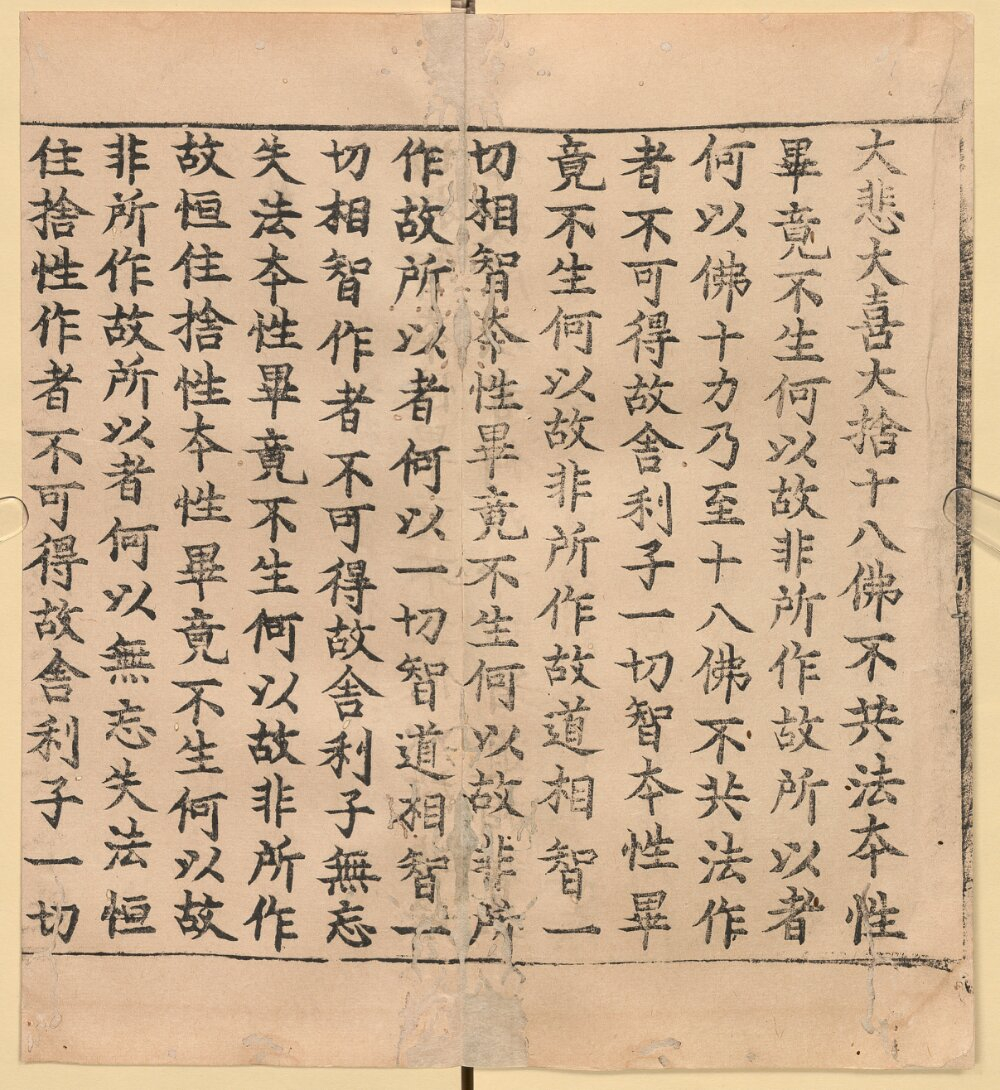 大悲大喜大捨十八佛不共法本性
畢竟不生何以故非所作故所以者
何以佛十力乃至十八佛不共法作
者不可得故舍利子一切智本性畢
竟不生何以故非所作故道相智一
切相智本性畢竟不生何以故非所
作故所以者何以一切智道相智一
切相智作者不可得故舍利子無忘
失法本性畢竟不生何以故非所作
故恒住捨性本性畢竟不生何以故
非所作故所以者何以無忘失法恒
住捨性作者不可得故舍利子一切